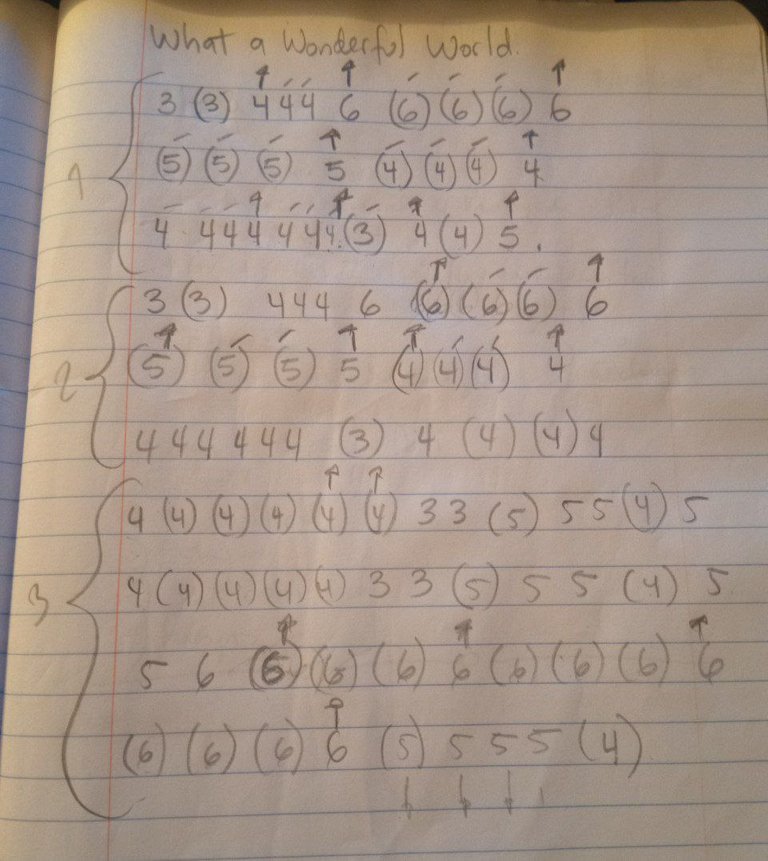 What a Wonderful World.
3 (3) 4 4 4 6 (6) (6) (6) 6
1 (5) (5) (5) 5 (4) (4) (4) 4
4 4 4 4 4 4 4 (3) 4 (4) 5.
3 (3) 4 4 4 6 (6) (6) (6) 6
2 (5) (5) (5) 5 (4) (4) (4) 4
4 4 4 4 4 4 (3) 4 (4) (4) 4
4 (4) (4) (4) (4) (4) 3 3 (5) 5 5 (4) 5
3 4 (4) (4) (4) (4) 3 3 (5) 5 5 (4) 5
5 6 (6) (6) (6) 6 (6) (6) (6) 6
(6) (6) (6) 6 (5) 5 5 5 (4)